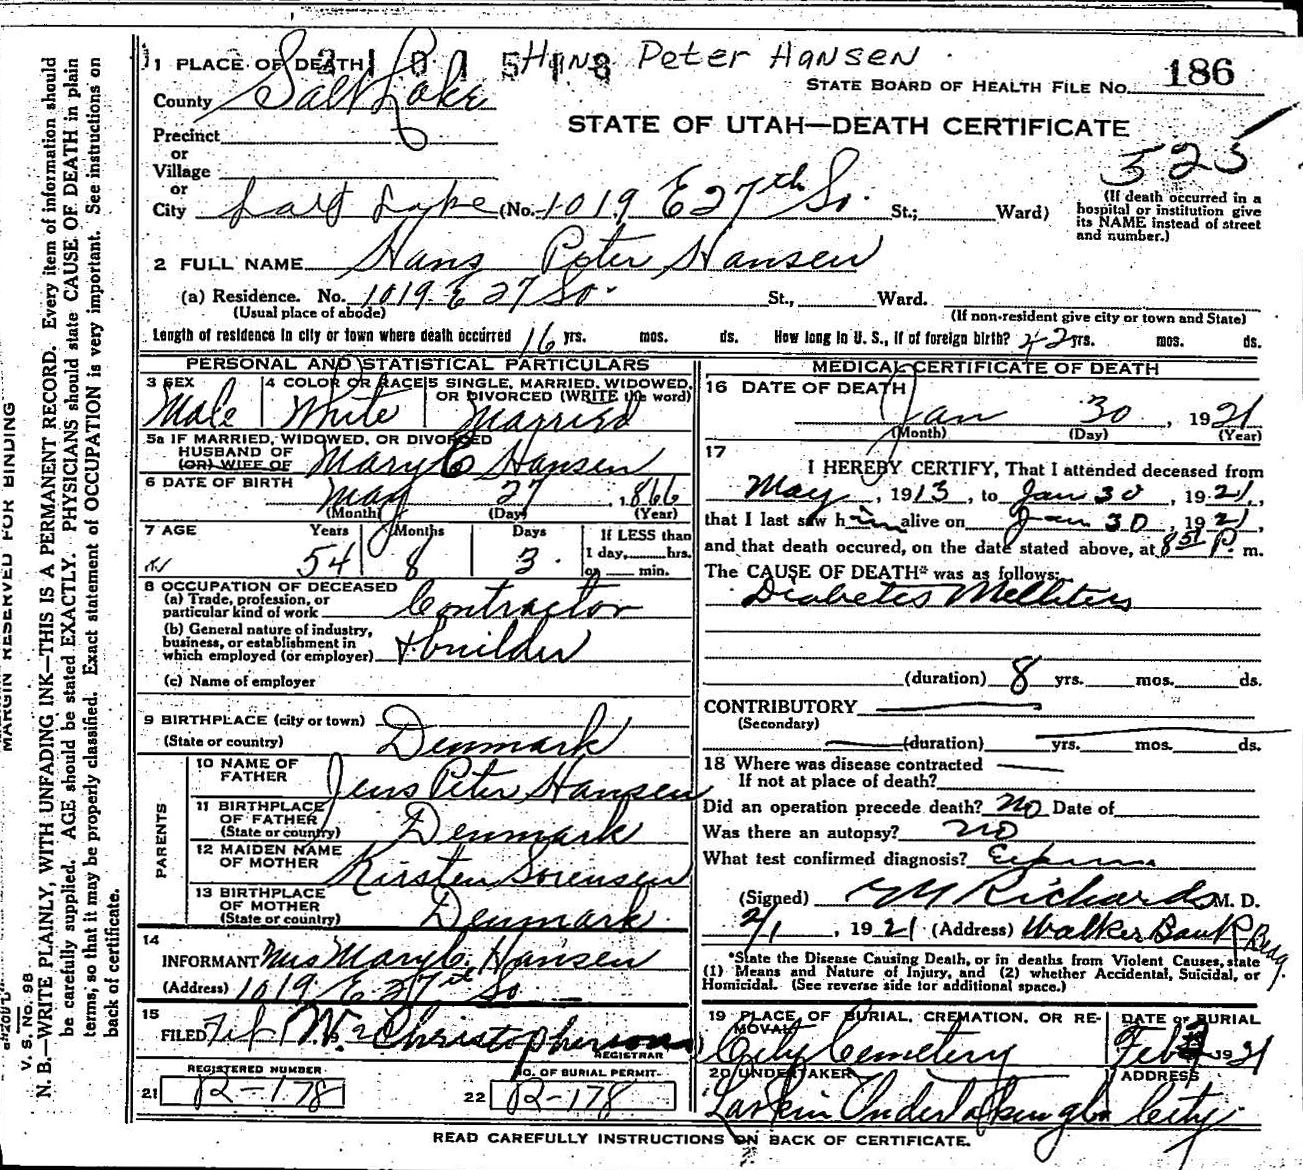 Hans Peter Hansen
1 PLACE OF DEATH
STATE BOARD OF HEALTH FILE No. 186
County Salt Lake
STATE OF UTAH—DEATH CERTIFICATE
Precinct
or
Village
or
525
(If death occurred in a hospital or institution give its NAME instead of street and number.)
City Salt Lake (No. 1019 E 27th So. St.; Ward)
2 FULL NAME Hans Peter Hansen
(a) Residence. No. 1019 E 27 So. St., Ward.
(Usual place of abode) (If non-resident give city or town and State)
Length of residence in city or town where death occurred 16 yrs. mos. ds. How long in U. S., if of foreign birth? 42 yrs. mos. ds.
PERSONAL AND STATISTICAL PARTICULARS
3 SEX 4 COLOR OR RACE 5 SINGLE, MARRIED, WIDOWED, OR DIVORCED (WRITE the word)
Male White Married
5a IF MARRIED, WIDOWED, OR DIVORCED
HUSBAND OF
(OR) WIFE OF Mary C Hansen
6 DATE OF BIRTH May 27, 1866
(Month) (Day) (Year)
7 AGE Years Months Days If LESS than
1 day, hrs.
or min.
54 8 3
8 OCCUPATION OF DECEASED
(a) Trade, profession, or
particular kind of work Contractor
(b) General nature of industry,
business, or establishment in
which employed (or employer) & builder
(c) Name of employer
9 BIRTHPLACE (city or town)
(State or country) Denmark
PARENTS
10 NAME OF
FATHER Jens Peter Hansen
11 BIRTHPLACE
OF FATHER
(State or country) Denmark
12 MAIDEN NAME
OF MOTHER Kirsten Sorensen
13 BIRTHPLACE
OF MOTHER
(State or country) Denmark
14
INFORMANT Mrs Mary C. Hansen
(Address) 1019 E. 27th So
15
FILED Feb 1 Christopherson
REGISTRAR
REGISTERED NUMBER NO. OF BURIAL PERMIT
21 R-178 22 R-178
MEDICAL CERTIFICATE OF DEATH
16 DATE OF DEATH
Jan 30, 1921
(Month) (Day) (Year)
17
I HEREBY CERTIFY, That I attended deceased from
May, 1913, to Jan 30, 1921,
that I last saw him alive on Jan 30, 1921,
and that death occured, on the date stated above, at 8 51 P. m.
The CAUSE OF DEATH* was as follows:
Diabetes Mellitus
(duration) 8 yrs. mos. ds.
CONTRIBUTORY
(Secondary)
(duration) yrs. mos. ds.
18 Where was disease contracted
If not at place of death?
Did an operation precede death? no Date of
Was there an autopsy? no
What test confirmed diagnosis?
(Signed) Richards M. D.
2/1, 1921 (Address) Walker Bank Bldg
*State the Disease Causing Death, or in deaths from Violent Causes, state
(1) Means and Nature of Injury, and (2) whether Accidental, Suicidal, or
Homicidal. (See reverse side for additional space.)
19 PLACE OF BURIAL, CREMATION, OR RE-
MOVAL
DATE OF BURIAL
City Cemetery Feb 1921
20 UNDERTAKER ADDRESS
Larkin Undertaking Co City
READ CAREFULLY INSTRUCTIONS ON BACK OF CERTIFICATE.
MARGIN RESERVED FOR BINDING
V. S. No. 98
N. B.—WRITE PLAINLY, WITH UNFADING INK—THIS IS A PERMANENT RECORD. Every item of information should
be carefully supplied. AGE should be stated EXACTLY. PHYSICIANS should state CAUSE OF DEATH in plain
terms, so that it may be properly classified. Exact statement of OCCUPATION is very important. See instructions on
back of certificate.